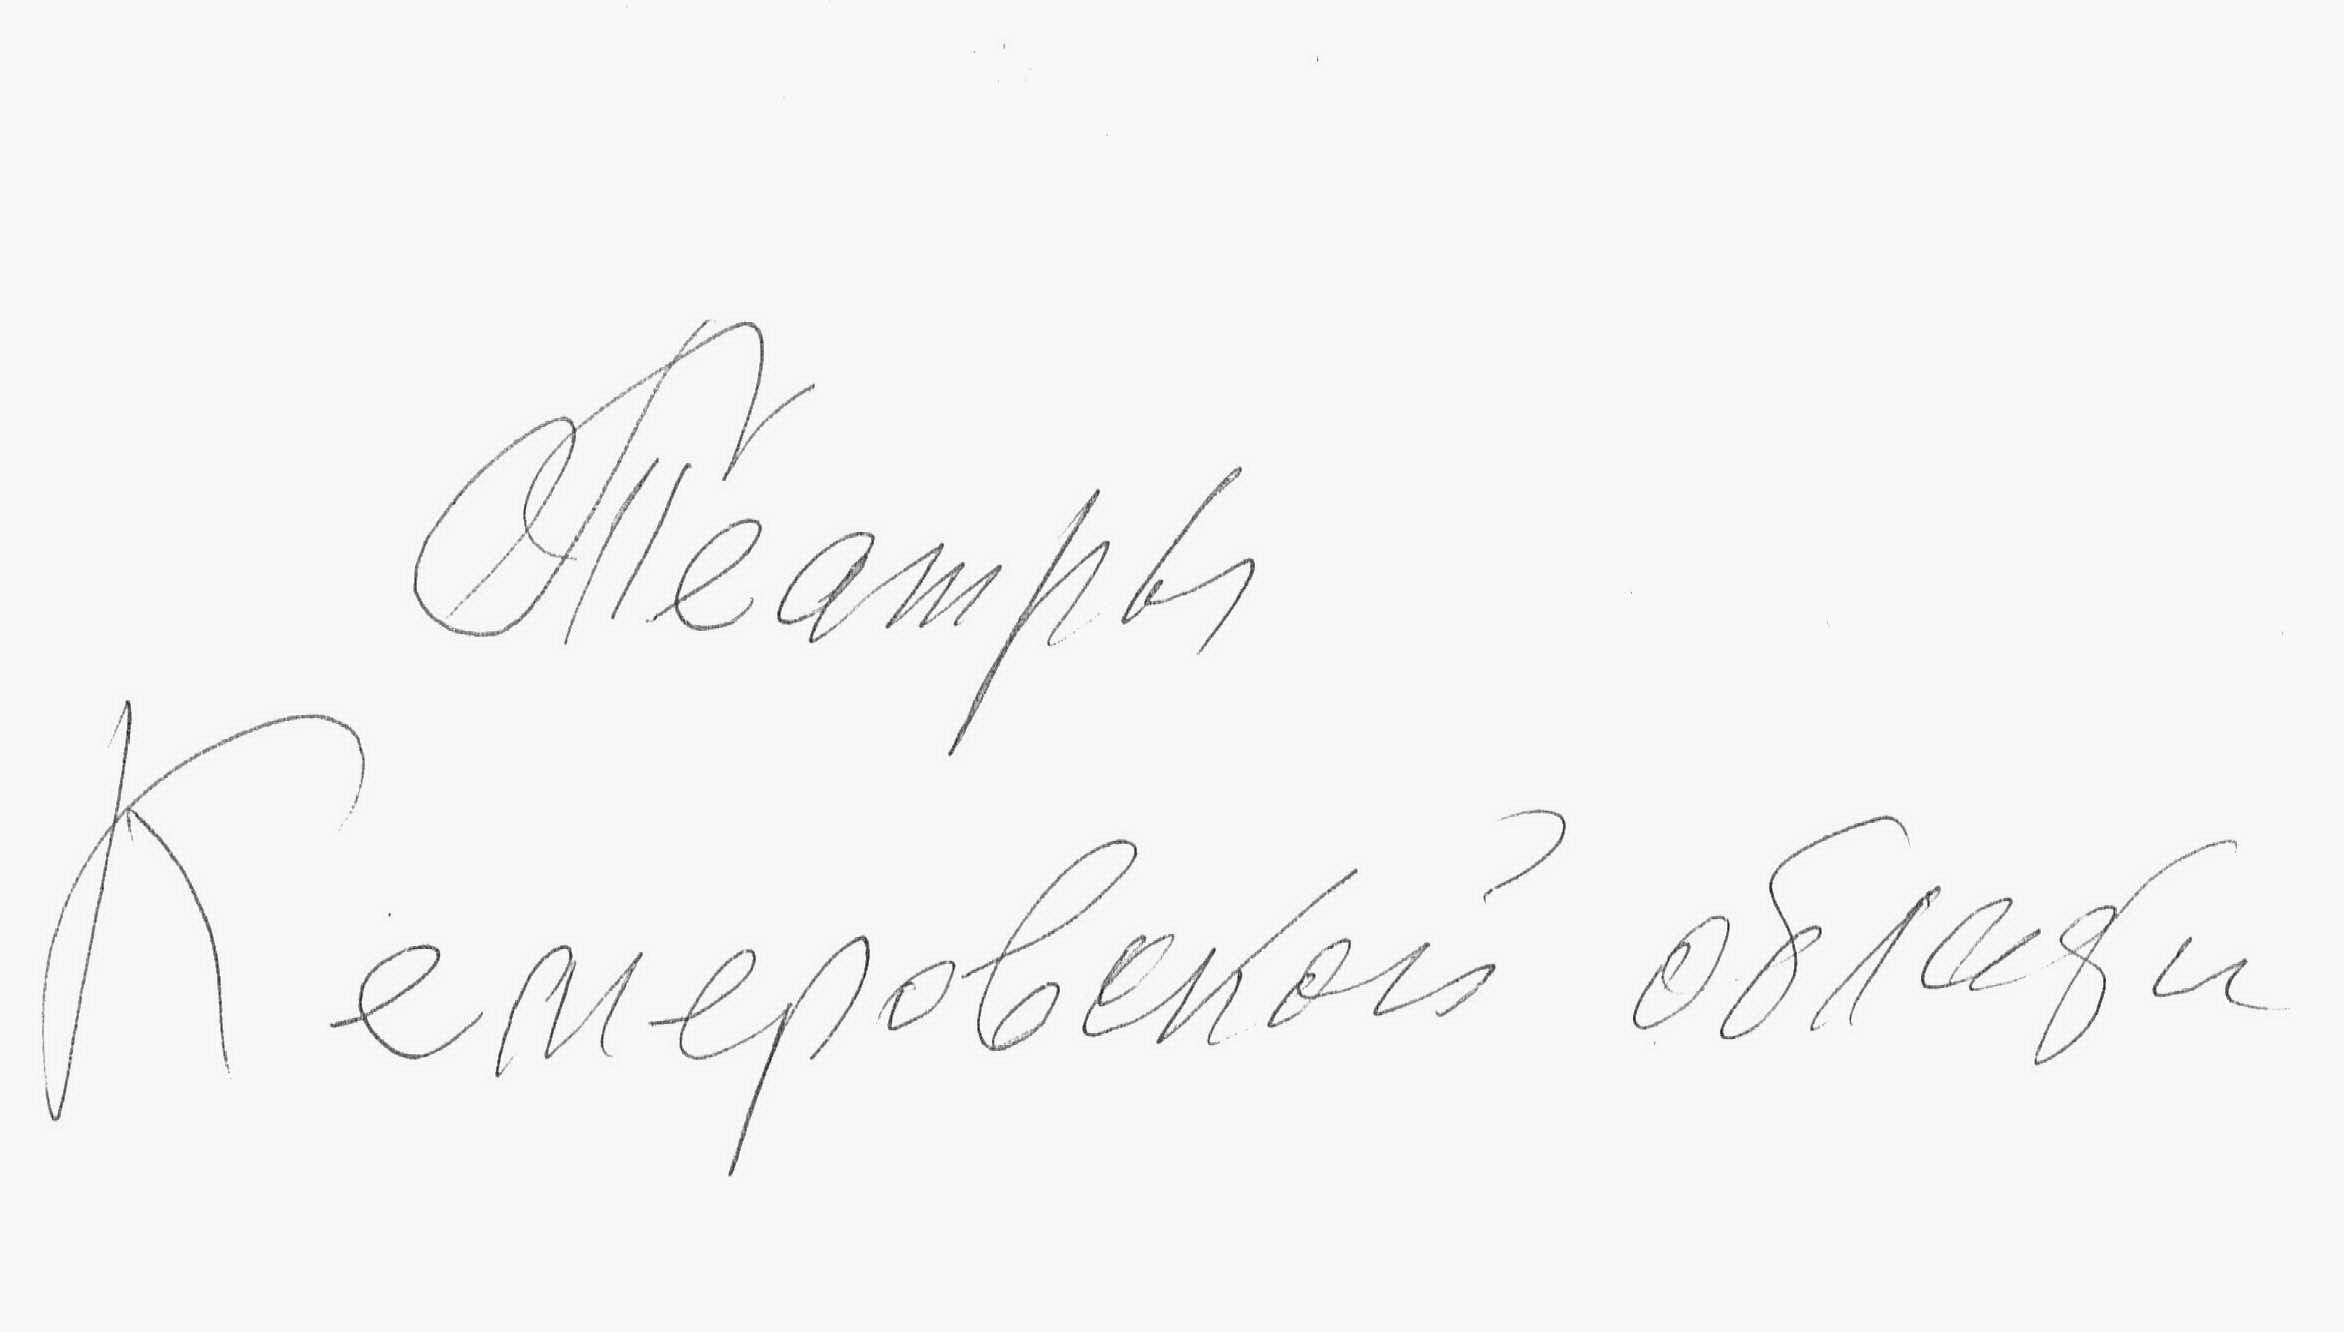 Театры
Кемеровской области